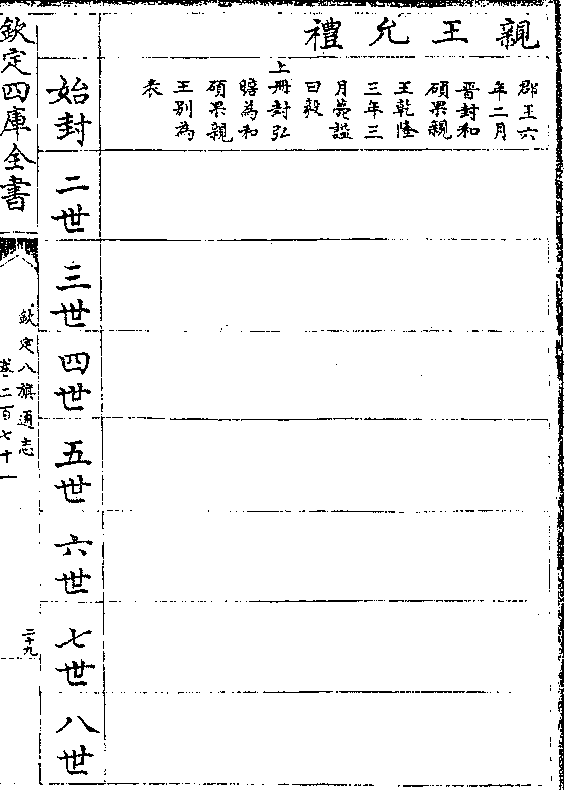 親王允禮
郡王六
年二月
晉封和
碩果親
王乾隆
三年三
月薨諡
曰毅
上冊封弘
瞻為和
碩果親
王別為
表
始封
二世
三世
四世
五世
六世
七世
八世
欽定四庫全書
欽定八旗通志
卷二百七十一
二十九